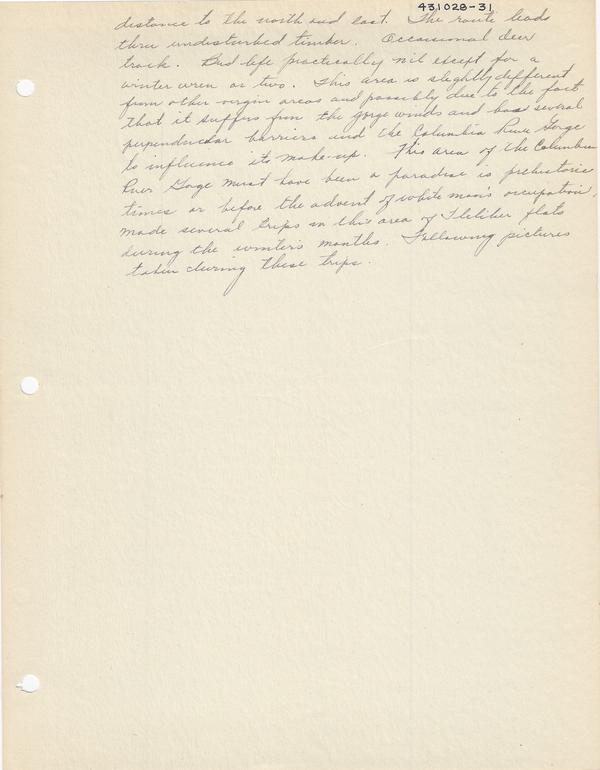 431028-31
distance to the north and east. The route leads
thru undisturbed timber. Occassional deer
track. Bird life practically nil except for a
winter wren or two. This area is slightly different
from other virgin areas and possibly due to the fact
that it suffers from the gorge winds and has several
perpendicular barriers and the Columbia River Gorge
to influence its make-up. This area of the Columbia
River Gorge must have been a paradise in prehistoric
times or before the advent of white man's occupation.
made several trips in this area of flats
during the winter's months. Following pictures
taken during these trips.